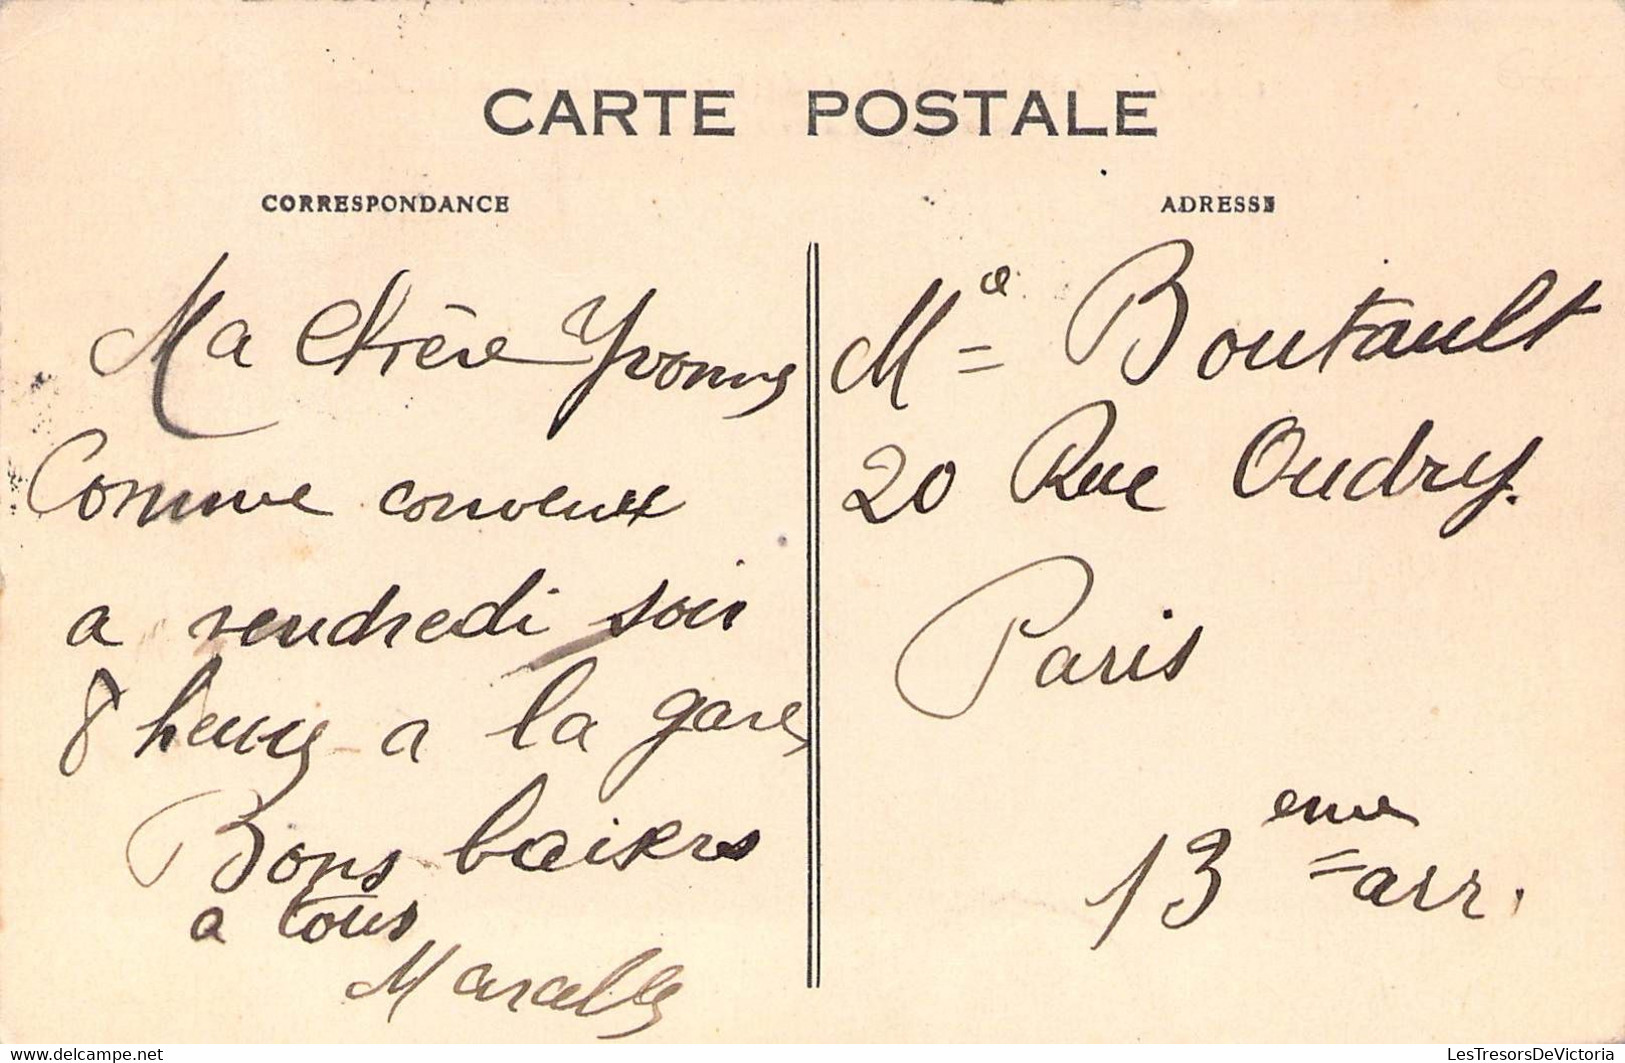 CARTE POSTALE
CORRESPONDANCE
Ma Chère Yvonne
Comme convenue
a vendredi soir
8 heures a la gare
Bons baisers
a tous
Marcelle
ADRESSE
Me Boutault
20 Rue Oudry.
Paris
13eme arr.
delcampe.net
LesTresorsDeVictoria